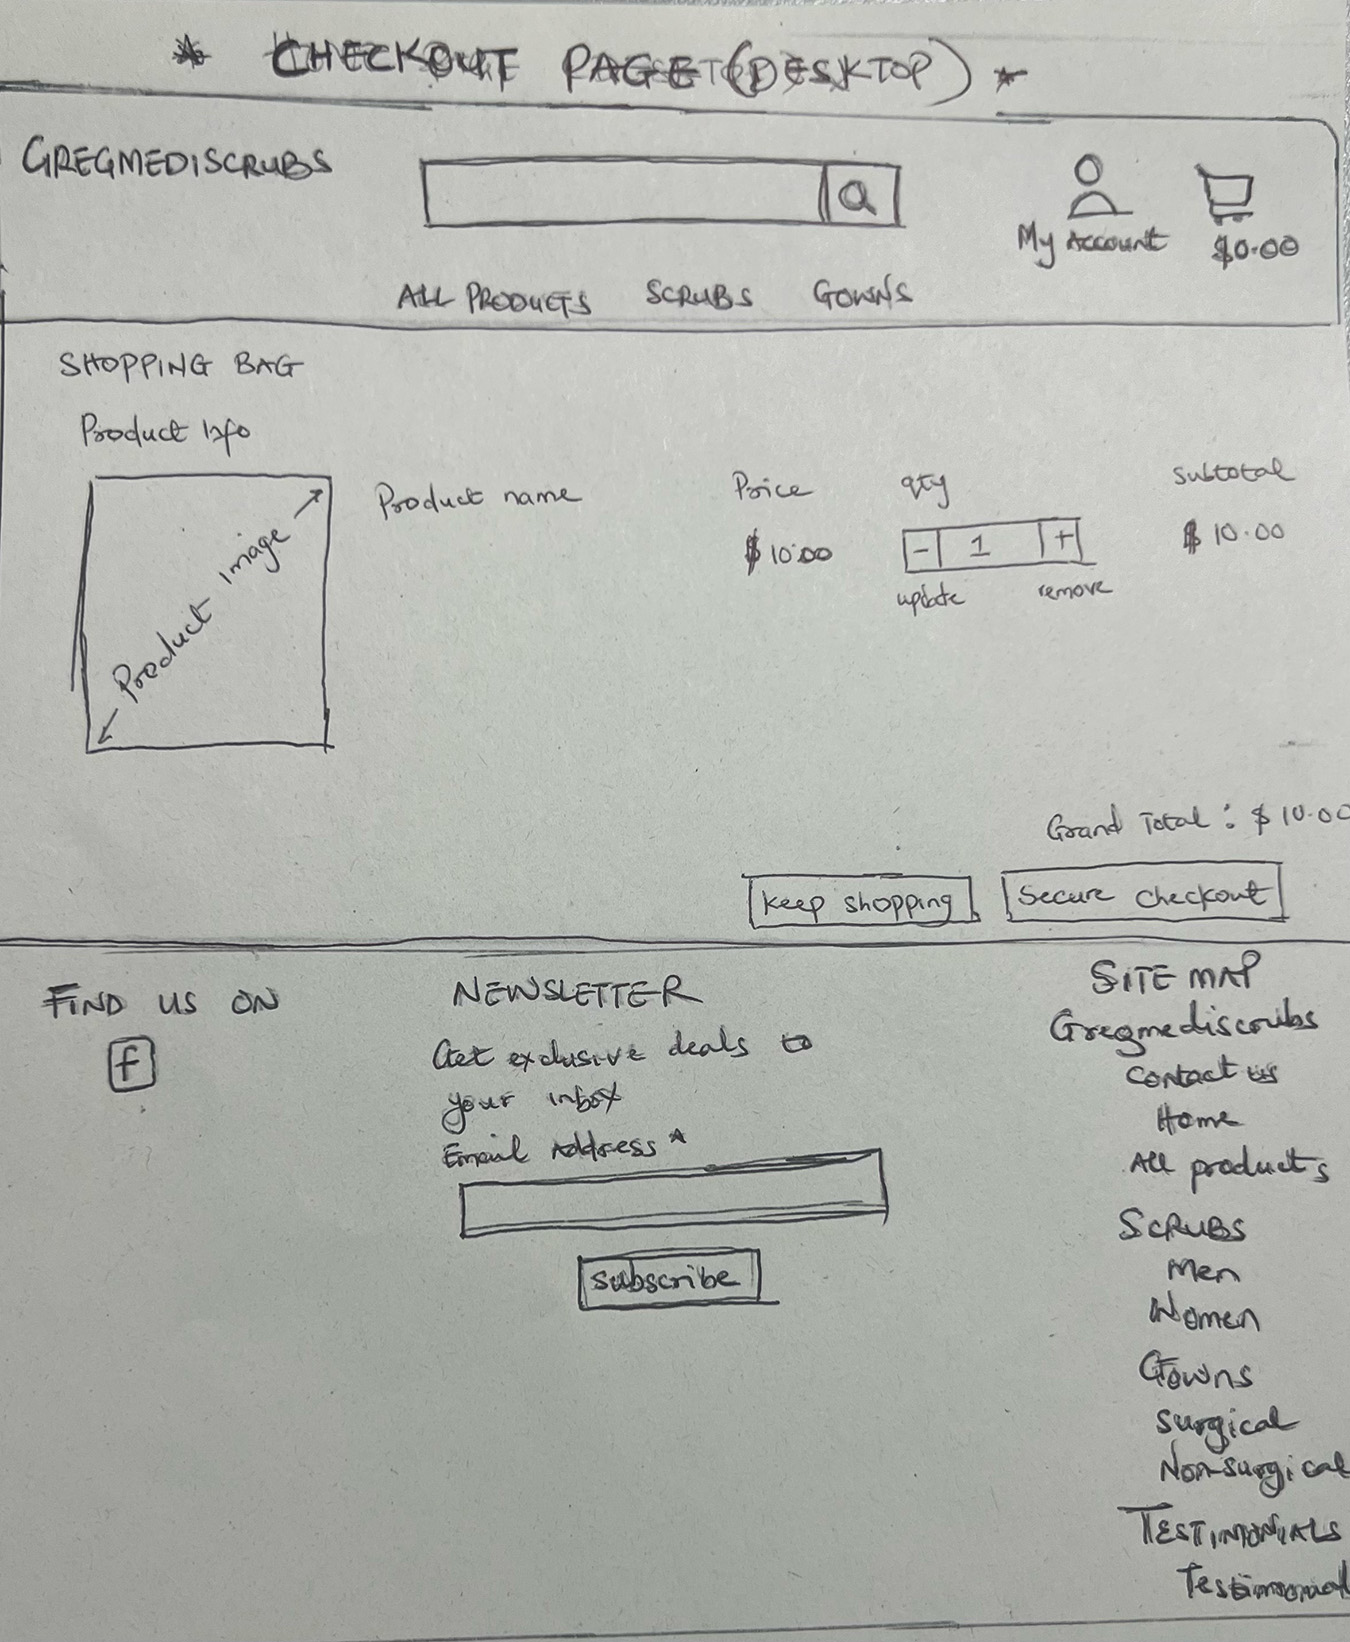 * CHECKOUT PAGE (DESKTOP) *
GREGMEDISCRUBS
My Account
$0.00
ALL PRODUCTS SCRUBS GOWNS
SHOPPING BAG
Product Info
Product image
Product name
Price
$10.00
qty
- 1 +
update remove
Subtotal
$10.00
Grand Total : $10.00
keep shopping
Secure checkout
FIND US ON
f
NEWSLETTER
Get exclusive deals to
your inbox
Email Address *
subscribe
SITE MAP
Gregmediscrubs
Contact us
Home
All products
SCRUBS
Men
Women
Gowns
Surgical
Non-surgical
TESTIMONIALS
Testimonial